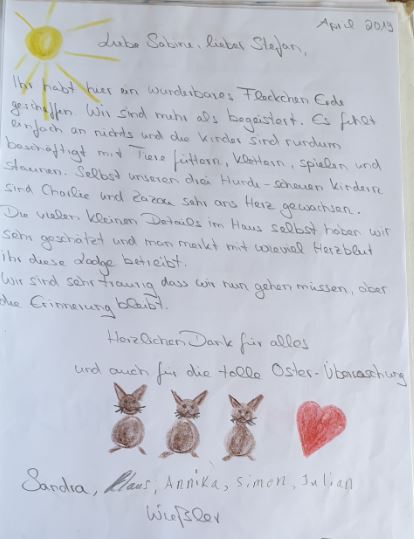 April 2019
Liebe Sabine, lieber Stefan,
Ihr habt hier ein wunderbares Fleckchen Erde
geschaffen. Wir sind mehr als begeistert. Es fehlt
einfach an nichts und die Kinder sind rundum
beschäftigt mit Tiere füttern, klettern, spielen und
staunen. Selbst unseren drei Hunde-scheuen Kindern
sind Charlie und Zazou sehr ans Herz gewachsen.
Die vielen kleinen Details im Haus selbst haben wir
sehr geschätzt und man merkt mit wieviel Herzblut
ihr diese Lodge betreibt.
Wir sind sehr traurig dass wir nun gehen müssen, aber
die Erinnerung bleibt.
Herzlichen Dank für alles
und auch für die tolle Oster-Überraschung
Sandra, Klaus, Annika, Simon, Julian
Wießler